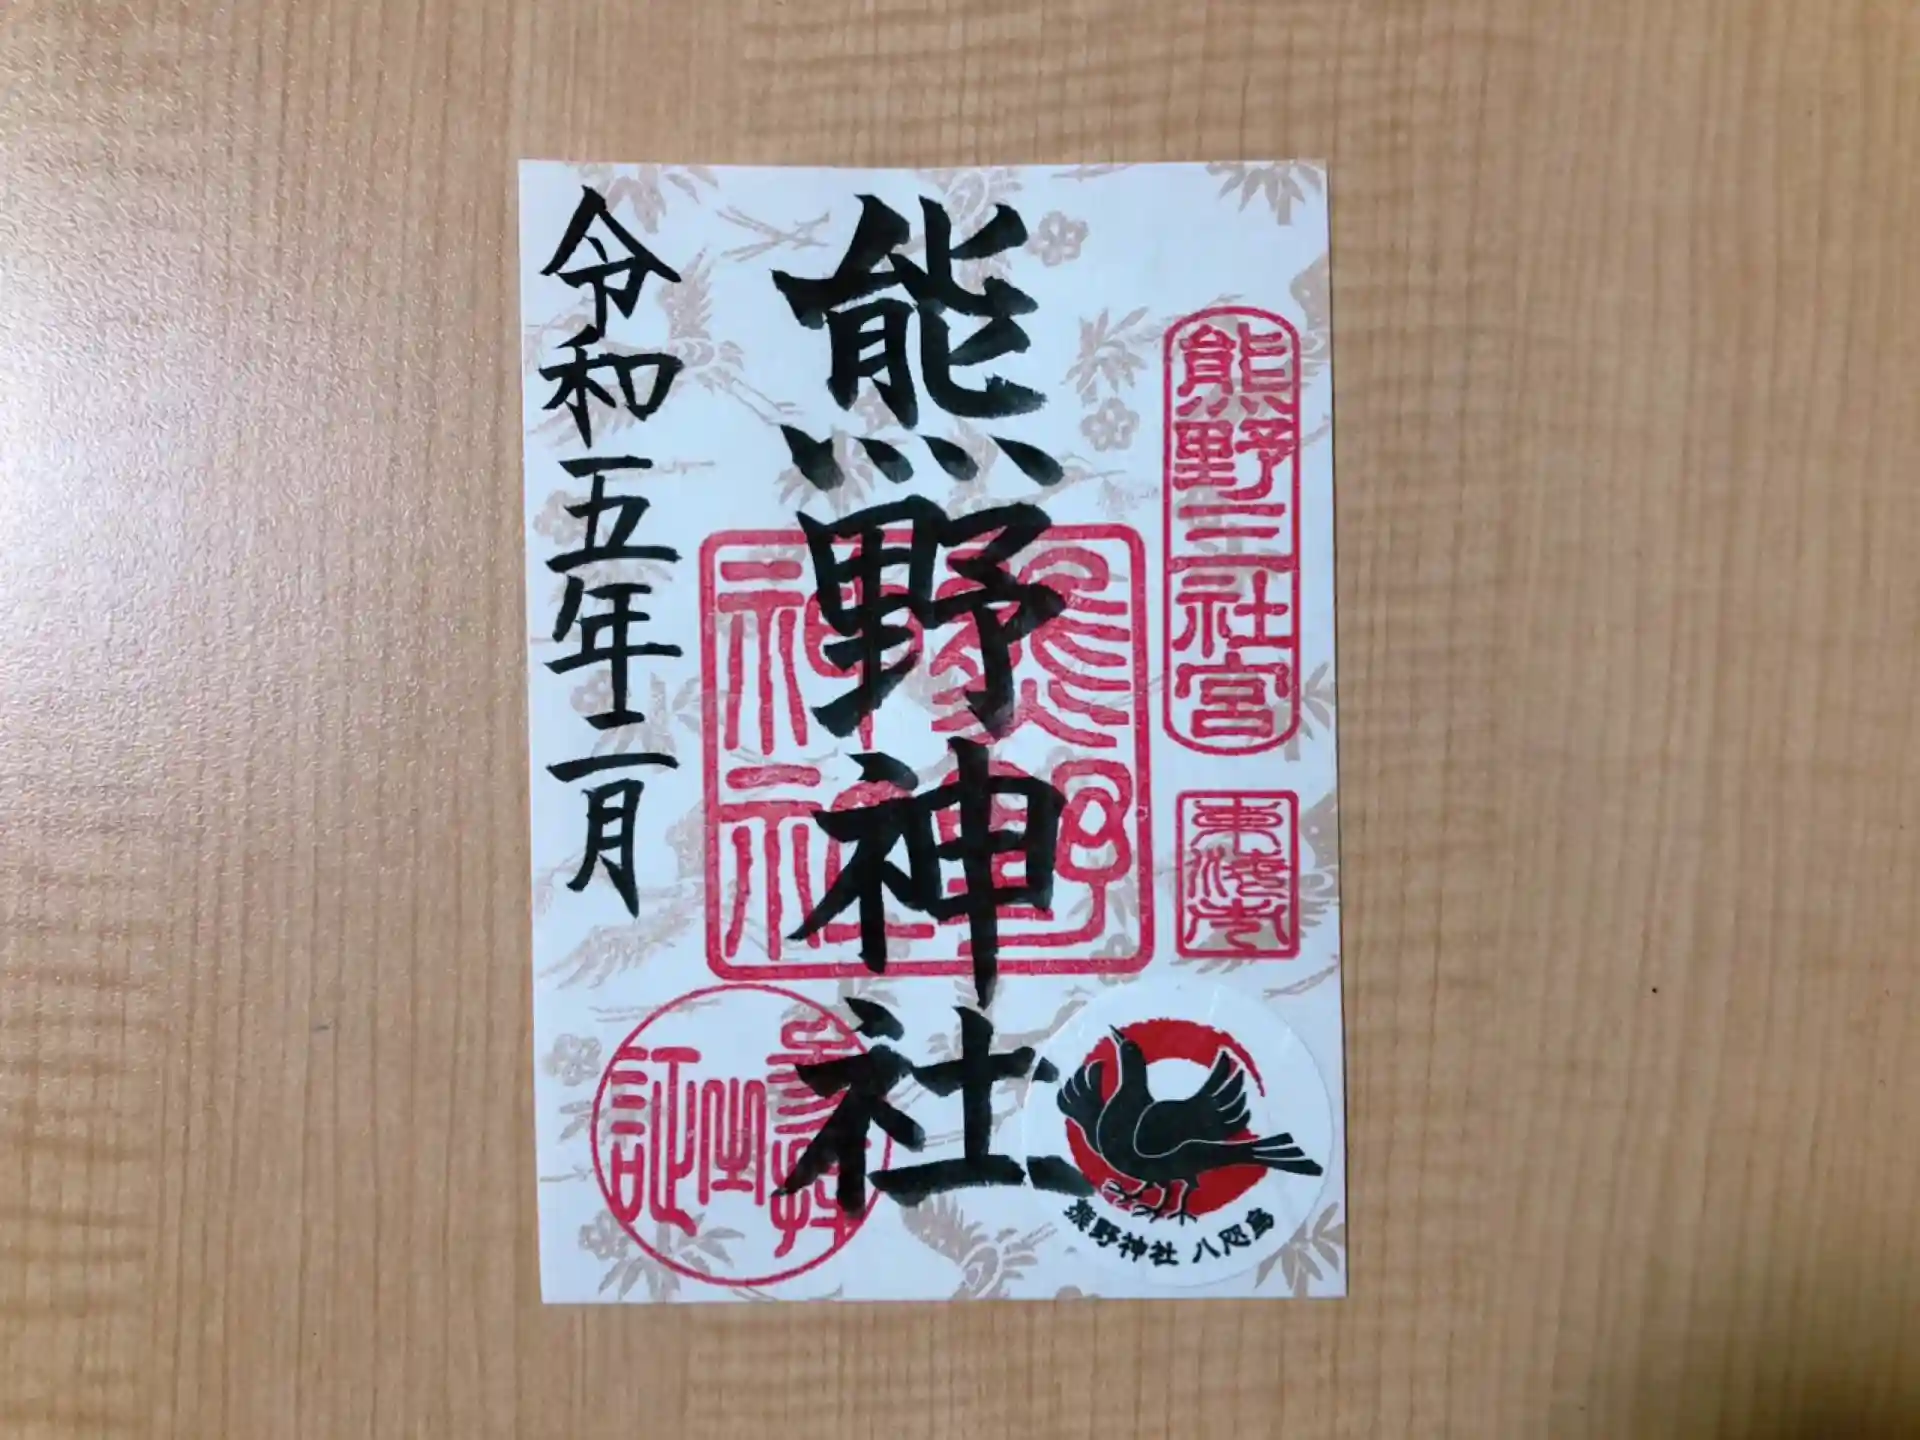 熊野三社宮
東浅草
熊野神社
熊野神社
参拝之証
令和五年二月
熊野神社 八咫烏